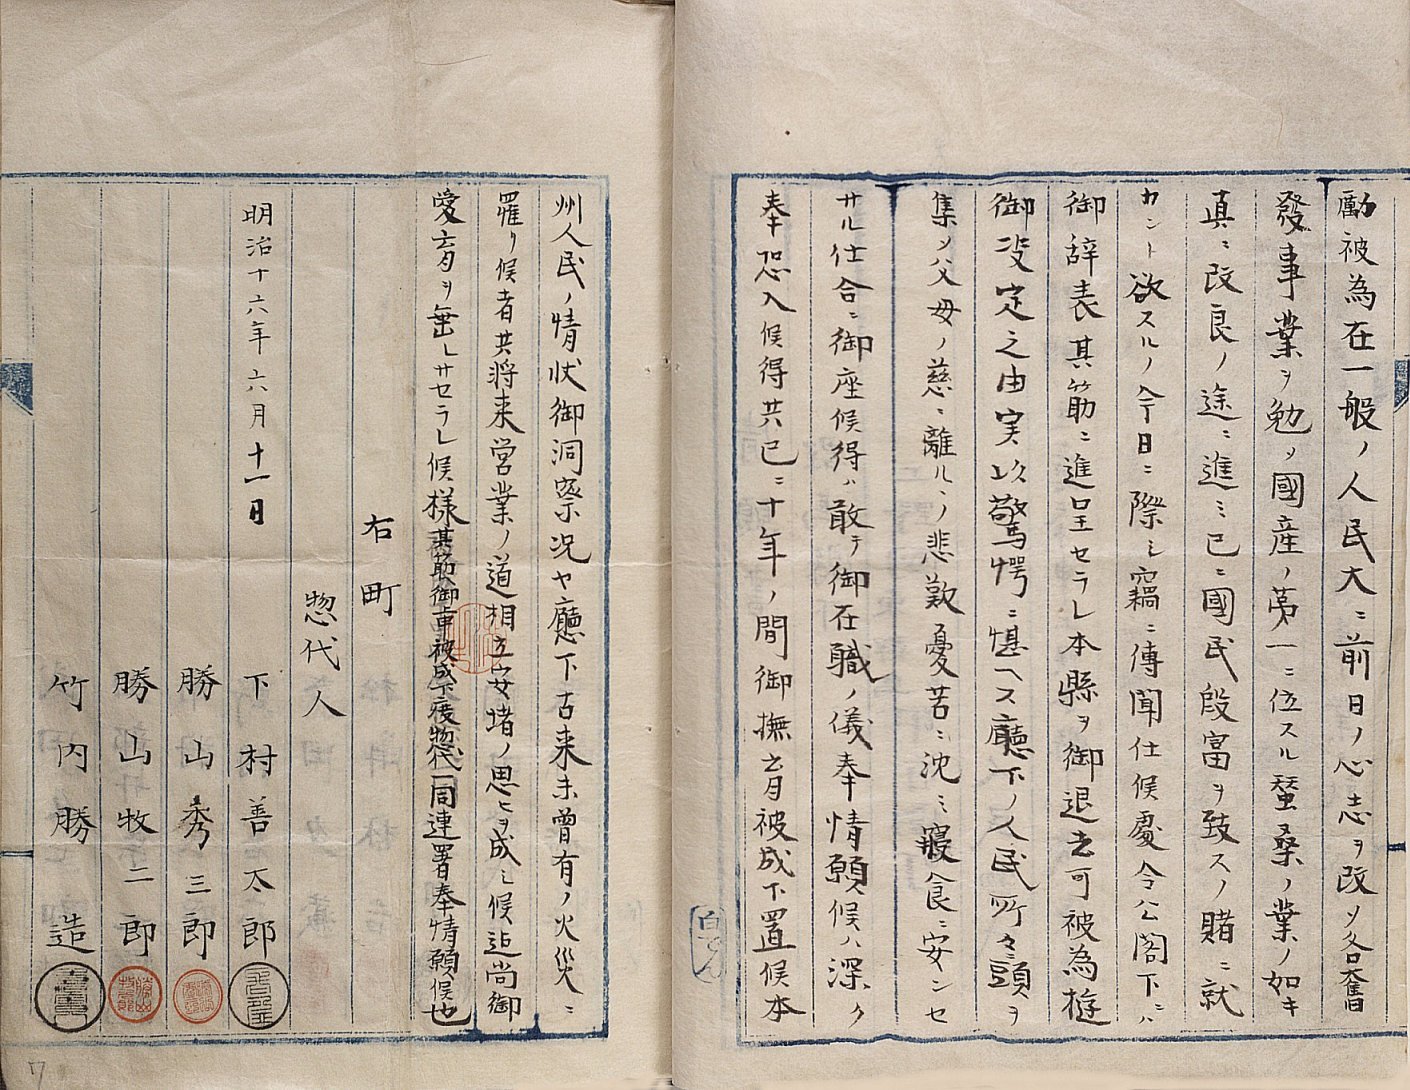 勵被為在一般ノ人民大ニ前日ノ心志ヲ改メ各奮
發事業ヲ勉メ國産ノ第一ニ位スル蚕桑ノ業ノ如キ
真ニ改良ノ途ニ進ミ已ニ國民殷富ヲ致スノ賭ニ就
カント欲スルノ今日ニ際シ竊ニ傳聞仕候處令公閣下ニハ
御辞表其筋ニ進呈セラレ本縣ヲ御退去可被為遊
御決定之由実以驚愕ニ堪ヘス廳下ノ人民所々ニ頭ヲ
集メ父母ノ慈ニ離ルヽノ悲歎憂苦ニ沈ミ寢食ニ安ンセ
サル仕合ニ御座候得ハ敢テ御在職ノ儀奉情願候ハ深ク
奉恐入候得共已ニ十年ノ間御撫育被成下置候本
州人民ノ情状御洞察況ヤ廳下古来未曾有ノ火災ニ
罹リ候者共将来営業ノ道相立安堵ノ思ヒヲ成シ候迄尚御
愛育ヲ垂レサセラレ候様其筋御申被成下度惣代一同連署奉情願候也
右町
惣代人
明治十六年六月十一日
下村善太郎
勝山秀三郎
勝山牧二郎
竹内勝造